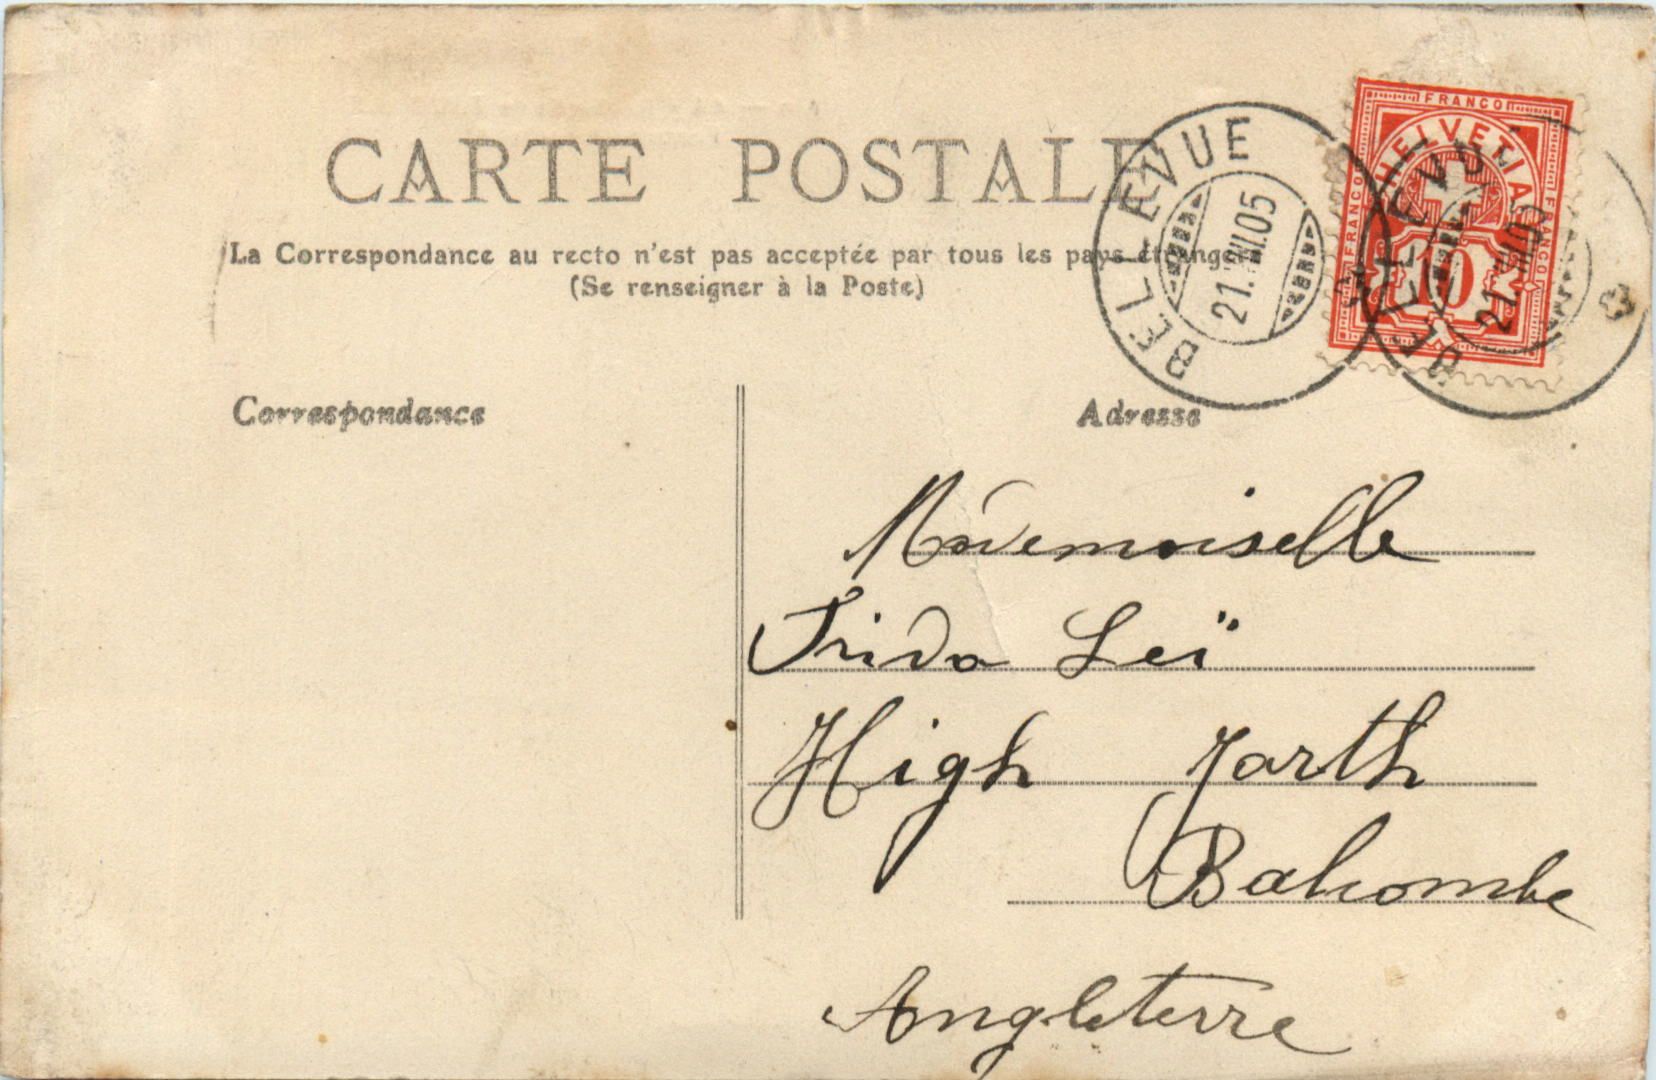 CARTE POSTALE
La Correspondance au recto n'est pas acceptée par tous les pays étrangers
(Se renseigner à la Poste)
BELLEVUE
21.VIII.05
FRANCO
HELVETIA
FRANCO
FRANCO
10
BELLEVUE
21.VIII.05
Correspondance
Adresse
Mademoiselle
Frida Leï
High
Balcombe
Angleterre